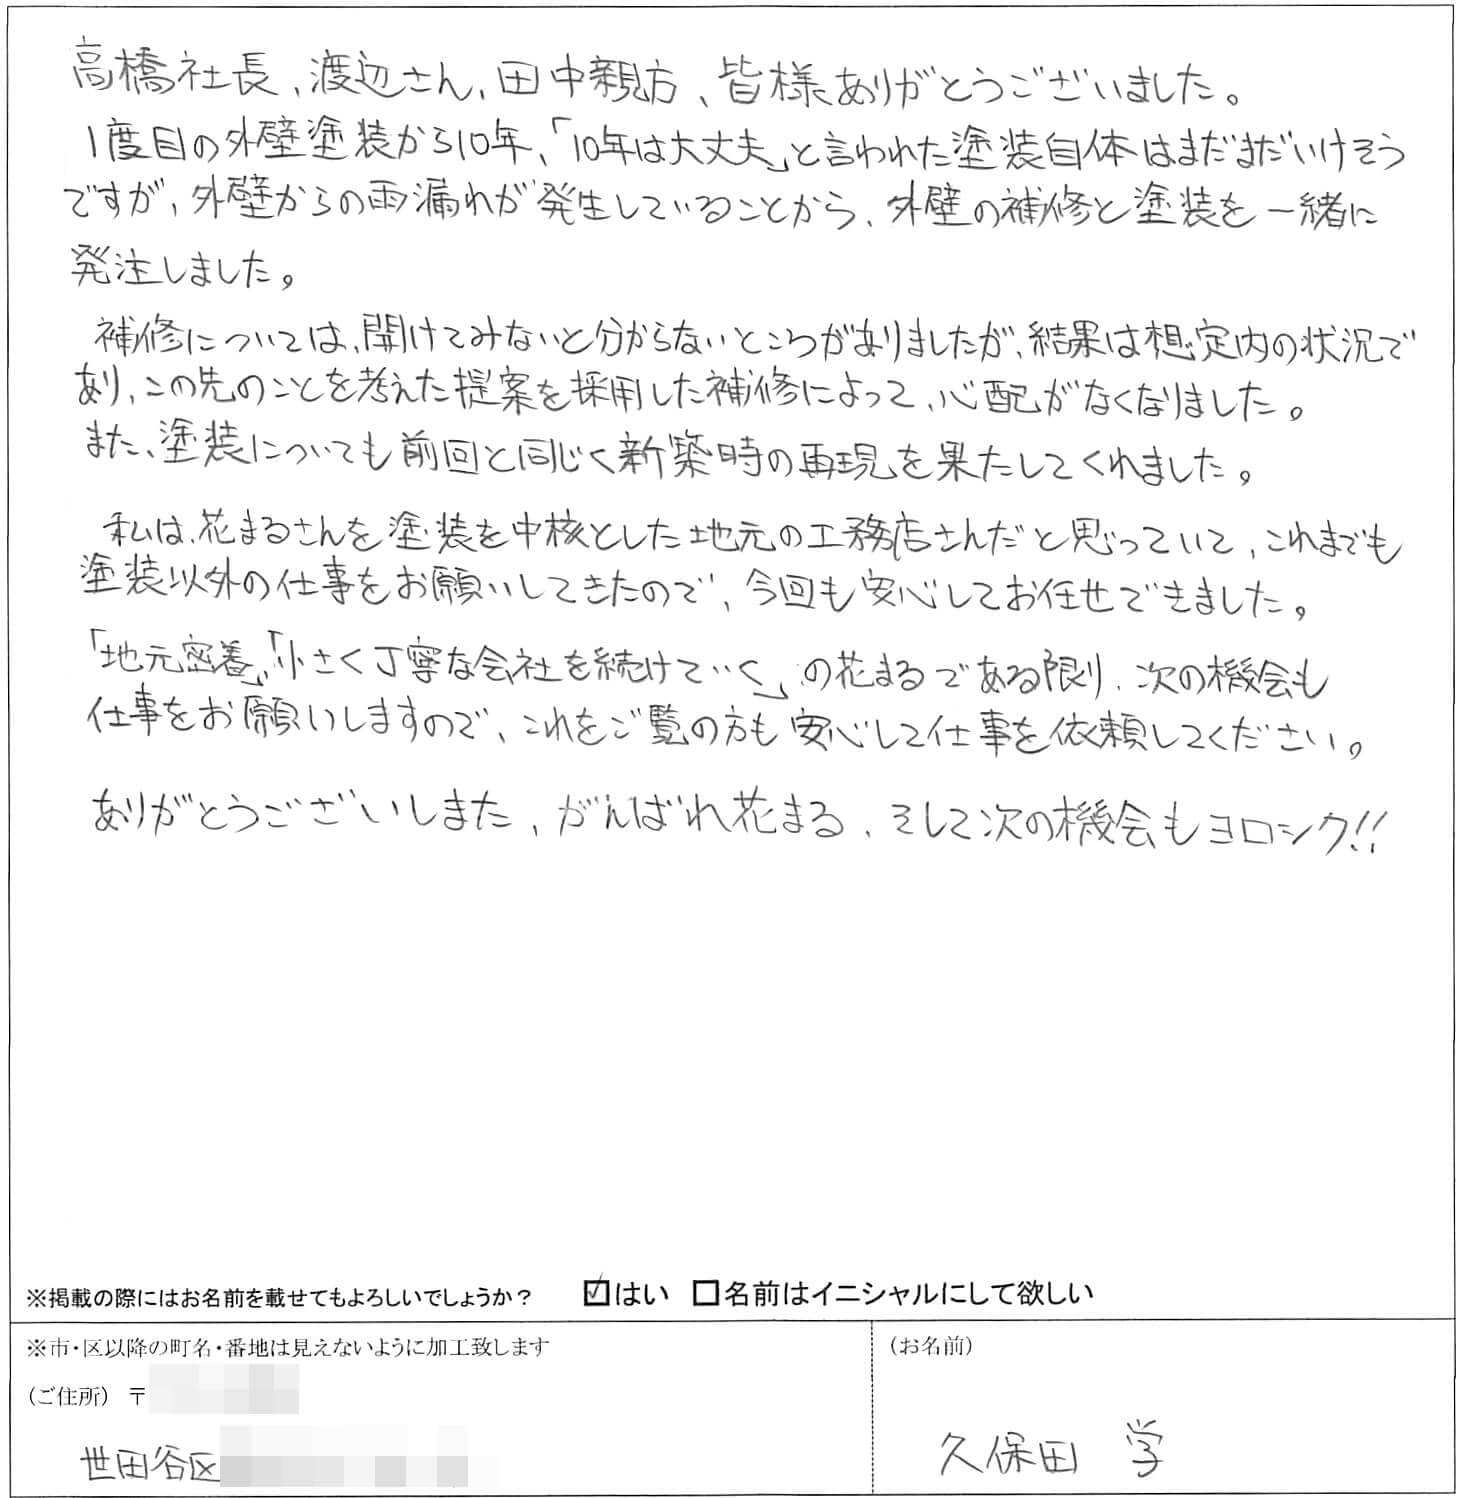 高橋社長、渡辺さん、田中親方、皆様ありがとうございました。
1度目の外壁塗装から10年、「10年は大丈夫」と言われた塗装自体はまだまだいけそう
ですが、外壁からの雨漏れが発生していることから、外壁の補修と塗装を一緒に
発注しました。
補修については、開けてみないと分からないところがありましたが、結果は想定内の状況で
あり、この先のことを考えた提案を採用した補修によって、心配がなくなりました。
また、塗装についても前回と同じく新築時の再現を果たしてくれました。
私は、花まるさんを塗装を中核とした地元の工務店さんだと思っていて、これまでも
塗装以外の仕事をお願いしてきたので、今回も安心してお任せできました。
「地元密着」「小さく丁寧な会社を続けていく」の花まるである限り、次の機会も
仕事をお願いしますので、これをご覧の方も安心して仕事を依頼してください。
ありがとうございしまた、がんばれ花まる、そして次の機会もヨロシク!!
※掲載の際にはお名前を載せてもよろしいでしょうか? ☑はい □名前はイニシャルにして欲しい
※市・区以降の町名・番地は見えないように加工致します
(ご住所) 〒
世田谷区
(お名前)
久保田 学